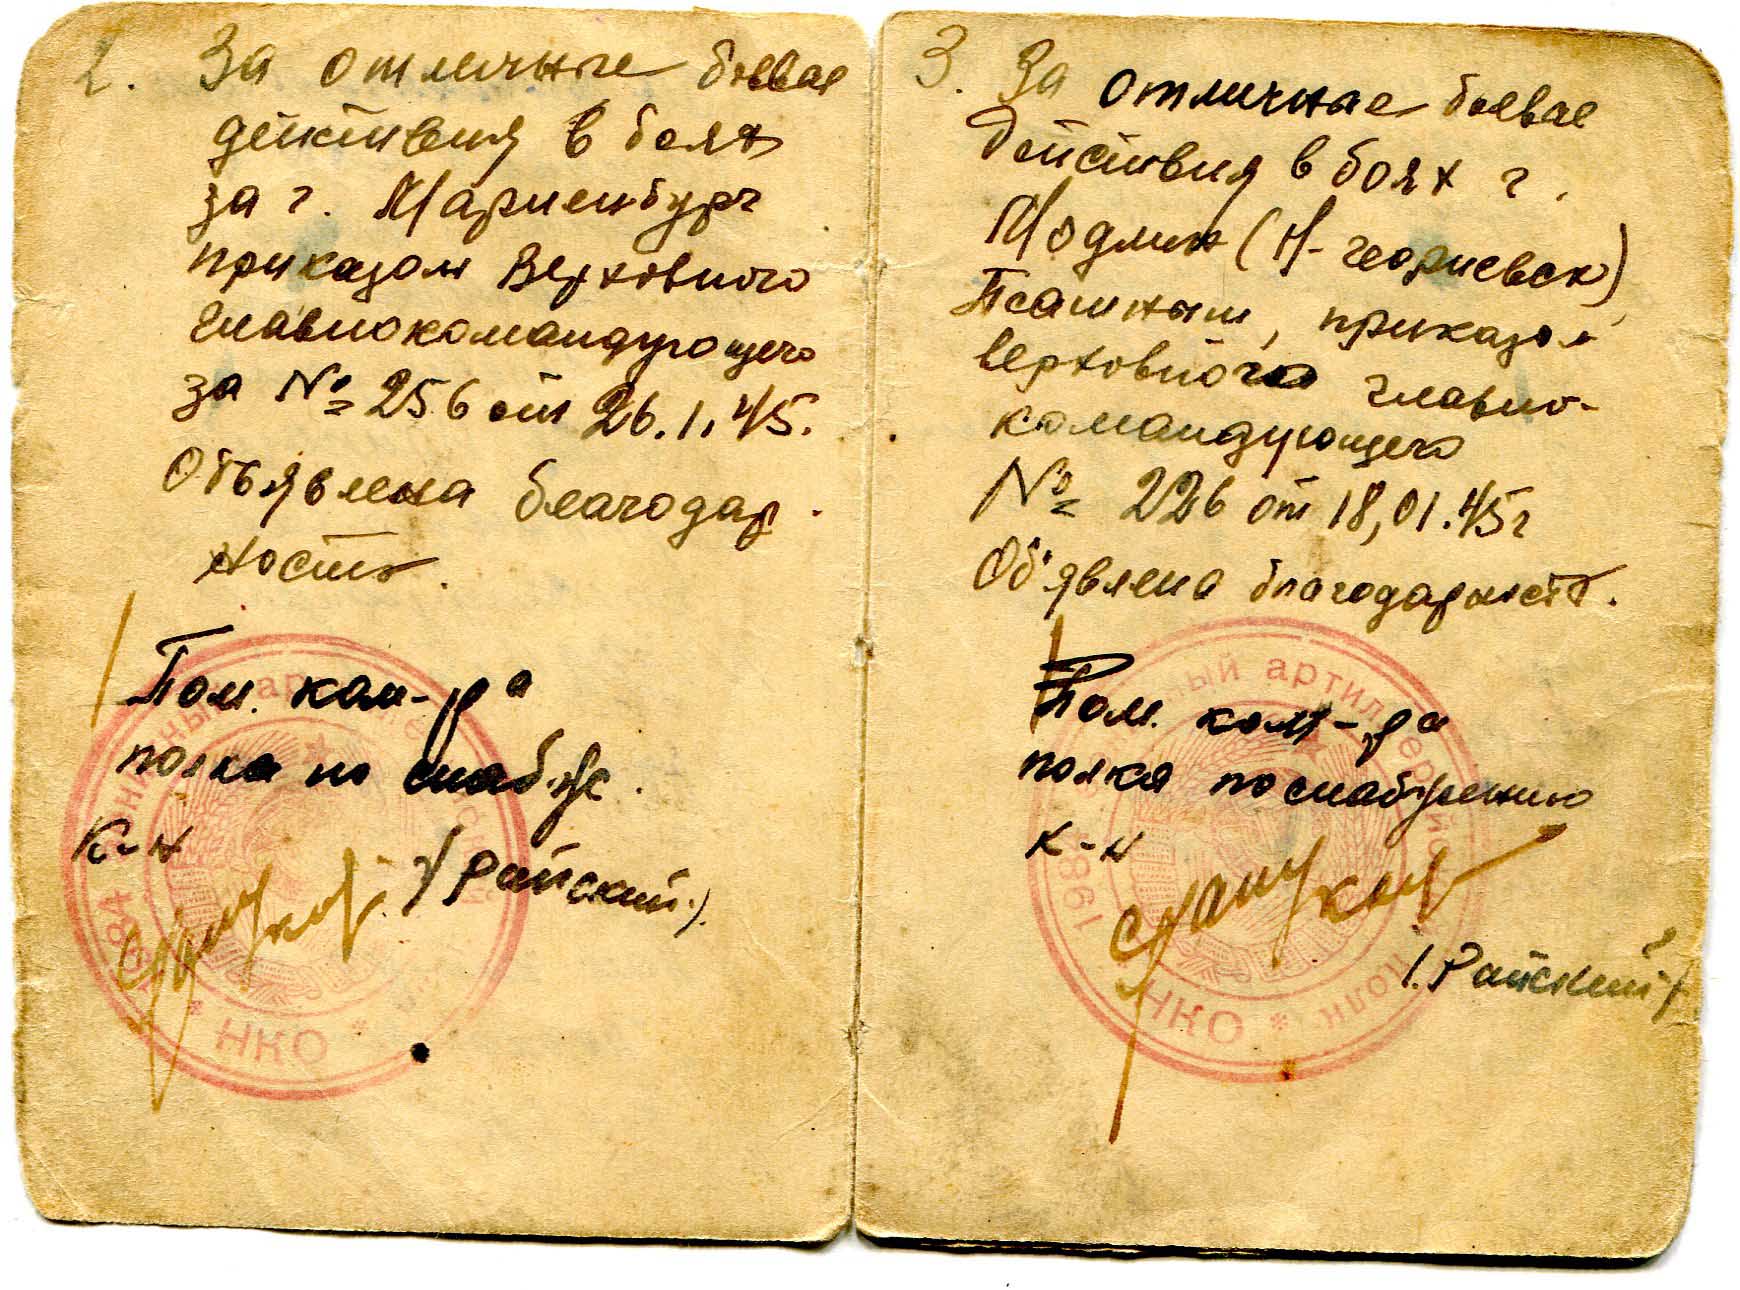 2. За отличные боевые
действия в боях
за г. Мариенбург
приказом Верховного
Главнокомандующего
за № 256 от 26.1.45.
Объявлена благодар
ность.
Пом. ком-ра
полка по снабж.
К-н
(Райский.)
НКО
3. За отличные боевые
действия в боях г.
Модлин (Н-георгиевск)
приказом
верховного главно-
командующего
№ 226 от 18,01.45г
Об'явлена благодарность.
Пом. ком-ра
полка по снабжению
к-н
(.Райский)
1981 ный артиллерийский полк * НКО